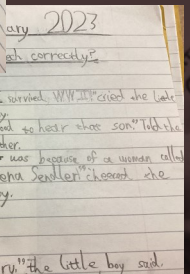 ary 2023
ech correctly?
survived WW II" cried the little
y.
ood to hear that son." Told the
ther.
was because of a woman called
ena Sendler" cheered the
y.
ry." The little boy said.